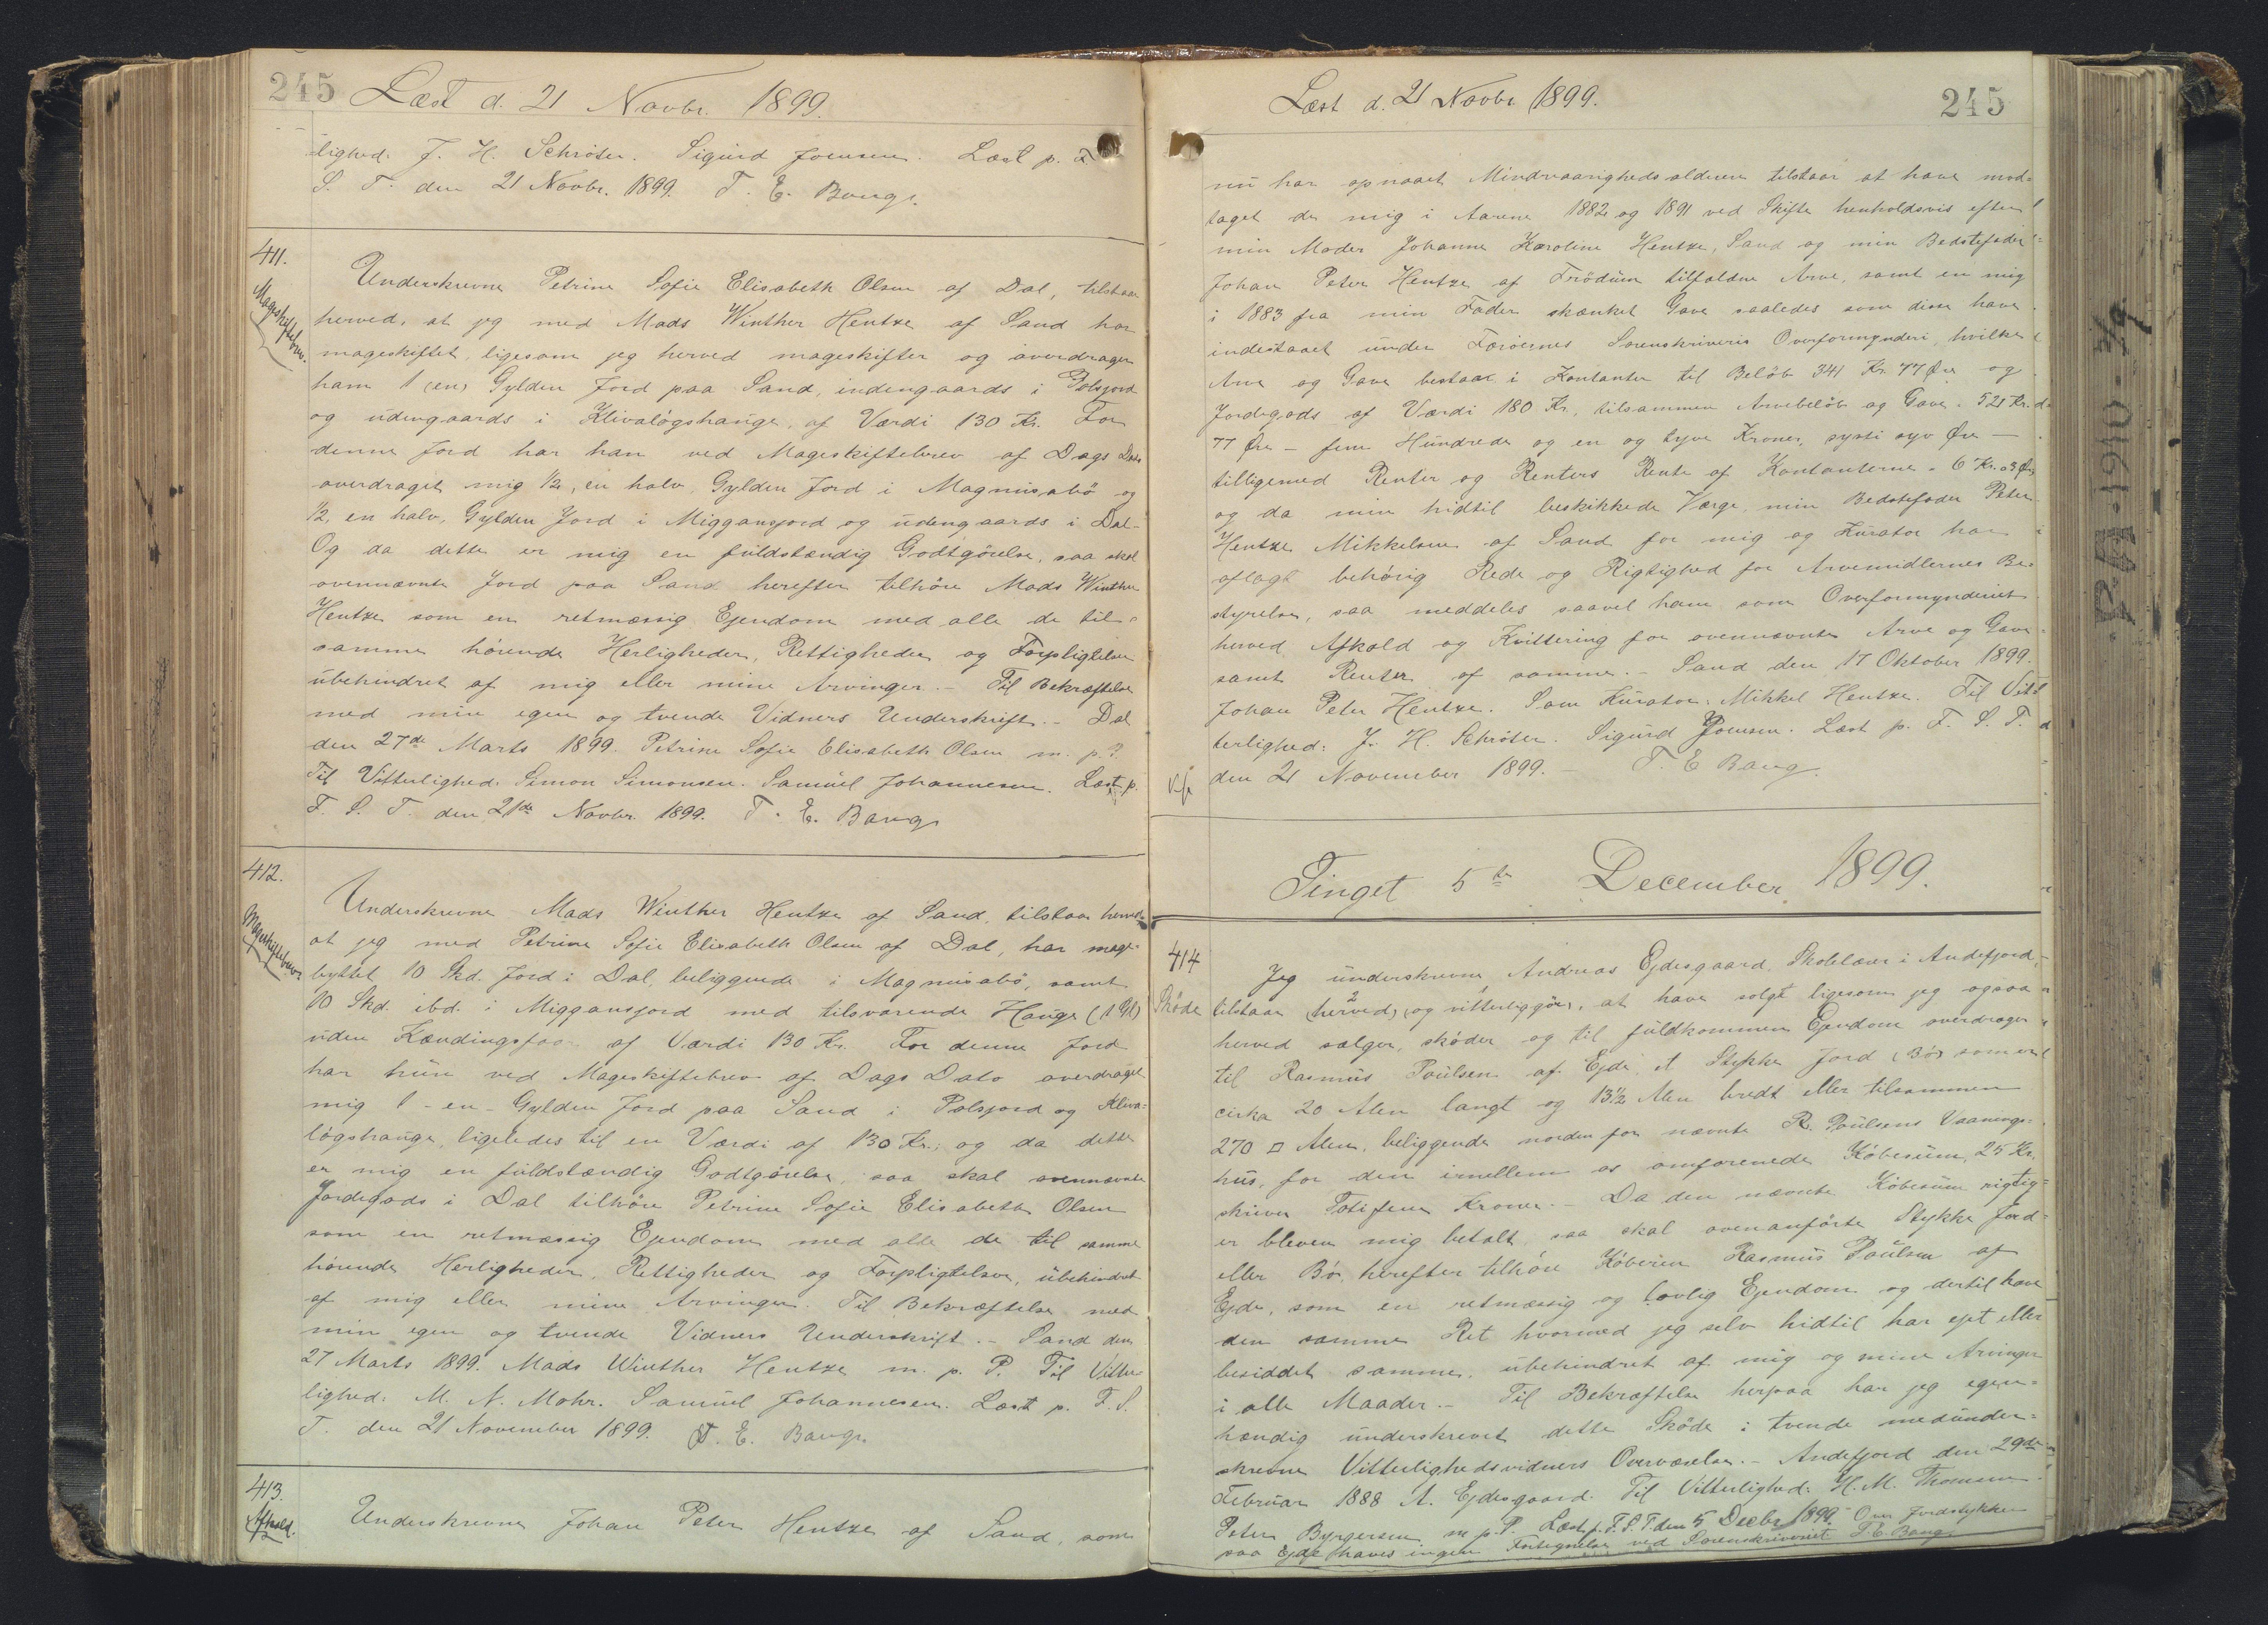 245 Læst d. 21 Novbr. 1899.
lighed: J. H. Schröter. Sigurd Joensen. Læst p. F
S. T. den 21 Novbr. 1899. T. E. Bang.
411.
Mageskiftebrev.
Underskrevne Petrine Sofie Elisabeth Olsen af Dal, tilstaar
herved, at jeg med Mads Winther Hentze af Sand har
mageskiftet, ligesom jeg herved mageskifter og overdrager
ham 1 (en) Gylden Jord paa Sand, indengaards i Polsjord
og udengaards i Klivalógshauge, af Værdi 130 Kr. For
denne Jord har han ved Mageskiftebrev af Dags Dato
overdraget mig 1/2, en halv, Gylden Jord i Magnusabö og
1/2, en halv, Gylden Jord i Miggansjord og udengaards i Dal-
Og da dette er mig en fuldstændig Godtgörelse, saa skal
ovennævnte Jord paa Sand herefter tilhöre Mads Winther
Hentze som en retmæssig Ejendom med alle de til-
samme hörende Herligheder, Rettigheder og Forpligtelser
ubehindret af mig eller mine Arvinger.- Til Bekræftelse
med min egen og tvende Vidners Underskrift.- Dal
den 27de Marts 1899. Petrine Sofie Elisabeth Olsen m. p. P.
Til Vitterlighed: Simon Simonsen. Samuel Johannesen. Læst p.
F. S. T. den 21de Novbr. 1899. T. E. Bang
412.
Mageskiftebrev
Underskrevne Mads Winther Hentze af Sand, tilstaar herved
at jeg med Petrine Sofie Elisabeth Olsen af Dal, har mage-
byttet 10 Skd. Jord i Dal, beliggende i Magnusabö, samt
10 Skd. ibd. i Miggansjord med tilsvarende Hauge (1 Gl)
uden Kændingsfaar af Værdi 130 Kr. For denne Jord
har hun ved Mageskiftebrev af Dags Dato overdraget
mig 1 - en - Gylden Jord paa Sand i Polsjord og Kliva-
lógshauge, ligeledes til en Værdi af 130 Kr.; og da dette
er mig en fuldstændig Godtgörelse, saa skal ovennævnte
Jordegods i Dal tilhöre Petrine Sofie Elisabeth Olsen
som en retmæssig Ejendom med alle de til samme
hörende Herligheder, Rettigheder og Forpligtelser, ubehindret
af mig eller mine Arvinger. Til Bekræftelse med
min egen og tvende Vidners Underskrift.- Sand den
27 Marts 1899. Mads Winther Hentze m. p. P. Til Vitter
lighed: M. N. Mohr. Samuel Johannesen. Læst p. F. S.
T. den 21 November 1899. T. E. Bang.
413.
Afkald.
Underskrevne Johan Peter Hentze af Sand, som
Læst d. 21 Novbr 1899. 245
nu har opnaaet Mindreaarighedsalderen tilstaar at have mod-
taget de mig i Aarene 1882 og 1891 ved Skifte henholdsvis efter
min Moder Johanne Karoline Hentze, Sand og min Bedstefader
Johan Peter Hentze af Frödum tilfaldne Arve, samt en mig
i 1883 fra min Fader skænket Gave saaledes som disse have
indestaaet under Færöernes Sorenskriveris Overformynderi, hvilken
Arv og Gave bestaar i Kontanter til Belöb 341 Kr. 77 Øre og
Jordegods af Værdi 180 Kr., tilsammen Arvebelöb og Gave. 521 Kr.
77 Øre - fem Hundrede og en og tyve Kroner, sytti syv Øre -
tilligemed Renter og Renters Rente af Kontanterne = 6 Kr. 03 Øre
og da min hidtil beskikkede Værge, min Bedstefader Peter
Hentze Mikkelsen af Sand for mig og Kurator har
aflagt behörig Rede og Rigtighed for Arvemidlernes Be-
styrelse, saa meddeles saavel ham som Overformynderiet
herved Afkald og Kvittering for ovennævnte Arve og Gave
samt Renter af samme.- Sand den 17 Oktober 1899.
Johan Peter Hentze. Som Kurator: Mikkel Hentze. Til Vit-
terlighed: J. H. Schröter. Sigurd Joensen. Læst p. F. S. T.
den 21 November 1899.- T. E Bang.
Tinget 5te December 1899.
414
Sköde
Jeg underskrevne, Andreas Ejdesgaard, Skolelærer i Andefjord,
tilstaar (herved) (og vitterliggör), at have solgt ligesom jeg ogsaa
herved sælger, sköder og til fuldkommen Ejendom overdrager
til Rasmus Poulsen af Ejde, et Stykke Jord (Bö) som er
cirka 20 Alen langt og 13½ Alen bredt eller tilsammen
270 □ Alen, beliggende norden for nævnte R. Poulsens Vaanings-
hus, for den imellem os omforenede Köbesum, 25 Kr.
skriver Totifem Kroner.- Da den nævnte Köbesum rigtig-
er bleven mig betalt, saa skal ovenanförte Stykke Jord-
eller Bö, herefter tilhöre Köberen Rasmus Poulsen af
Ejde, som en retmæssig og lovlig Ejendom og dertil have
den samme Ret hvormed jeg selv hidtil har ejet eller
besiddet samme, ubehindret af mig og mine Arvinger
i alle Maader.- Til Bekræftelse herpaa har jeg egen-
hændig underskrevet dette Sköde i tvende medunder-
skrevne Vitterlighedsvidners Overværelse.- Andefjord den 29de
Februar 1888 A. Ejdesgaard. Til Vitterlighed: H. M. Thomsen
Peter Byrgersen m. p. P. Læst p. F. S. T. den 5 Decbr 1899. Over Jordstykker
paa Ejde haves ingen Fortegnelse ved Sorenskriveriet T. E. Bang.